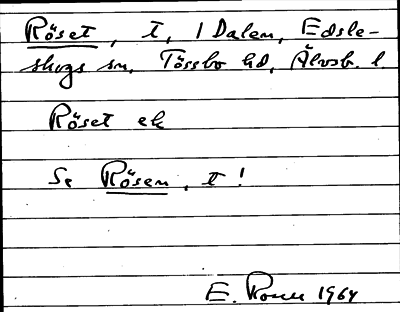 Röset, t, 1 Dalen, Edsle-
skogs sn, Tössbo hd, Älvsb. l.
Röset ek
Se Rösen, t!
E. 1964